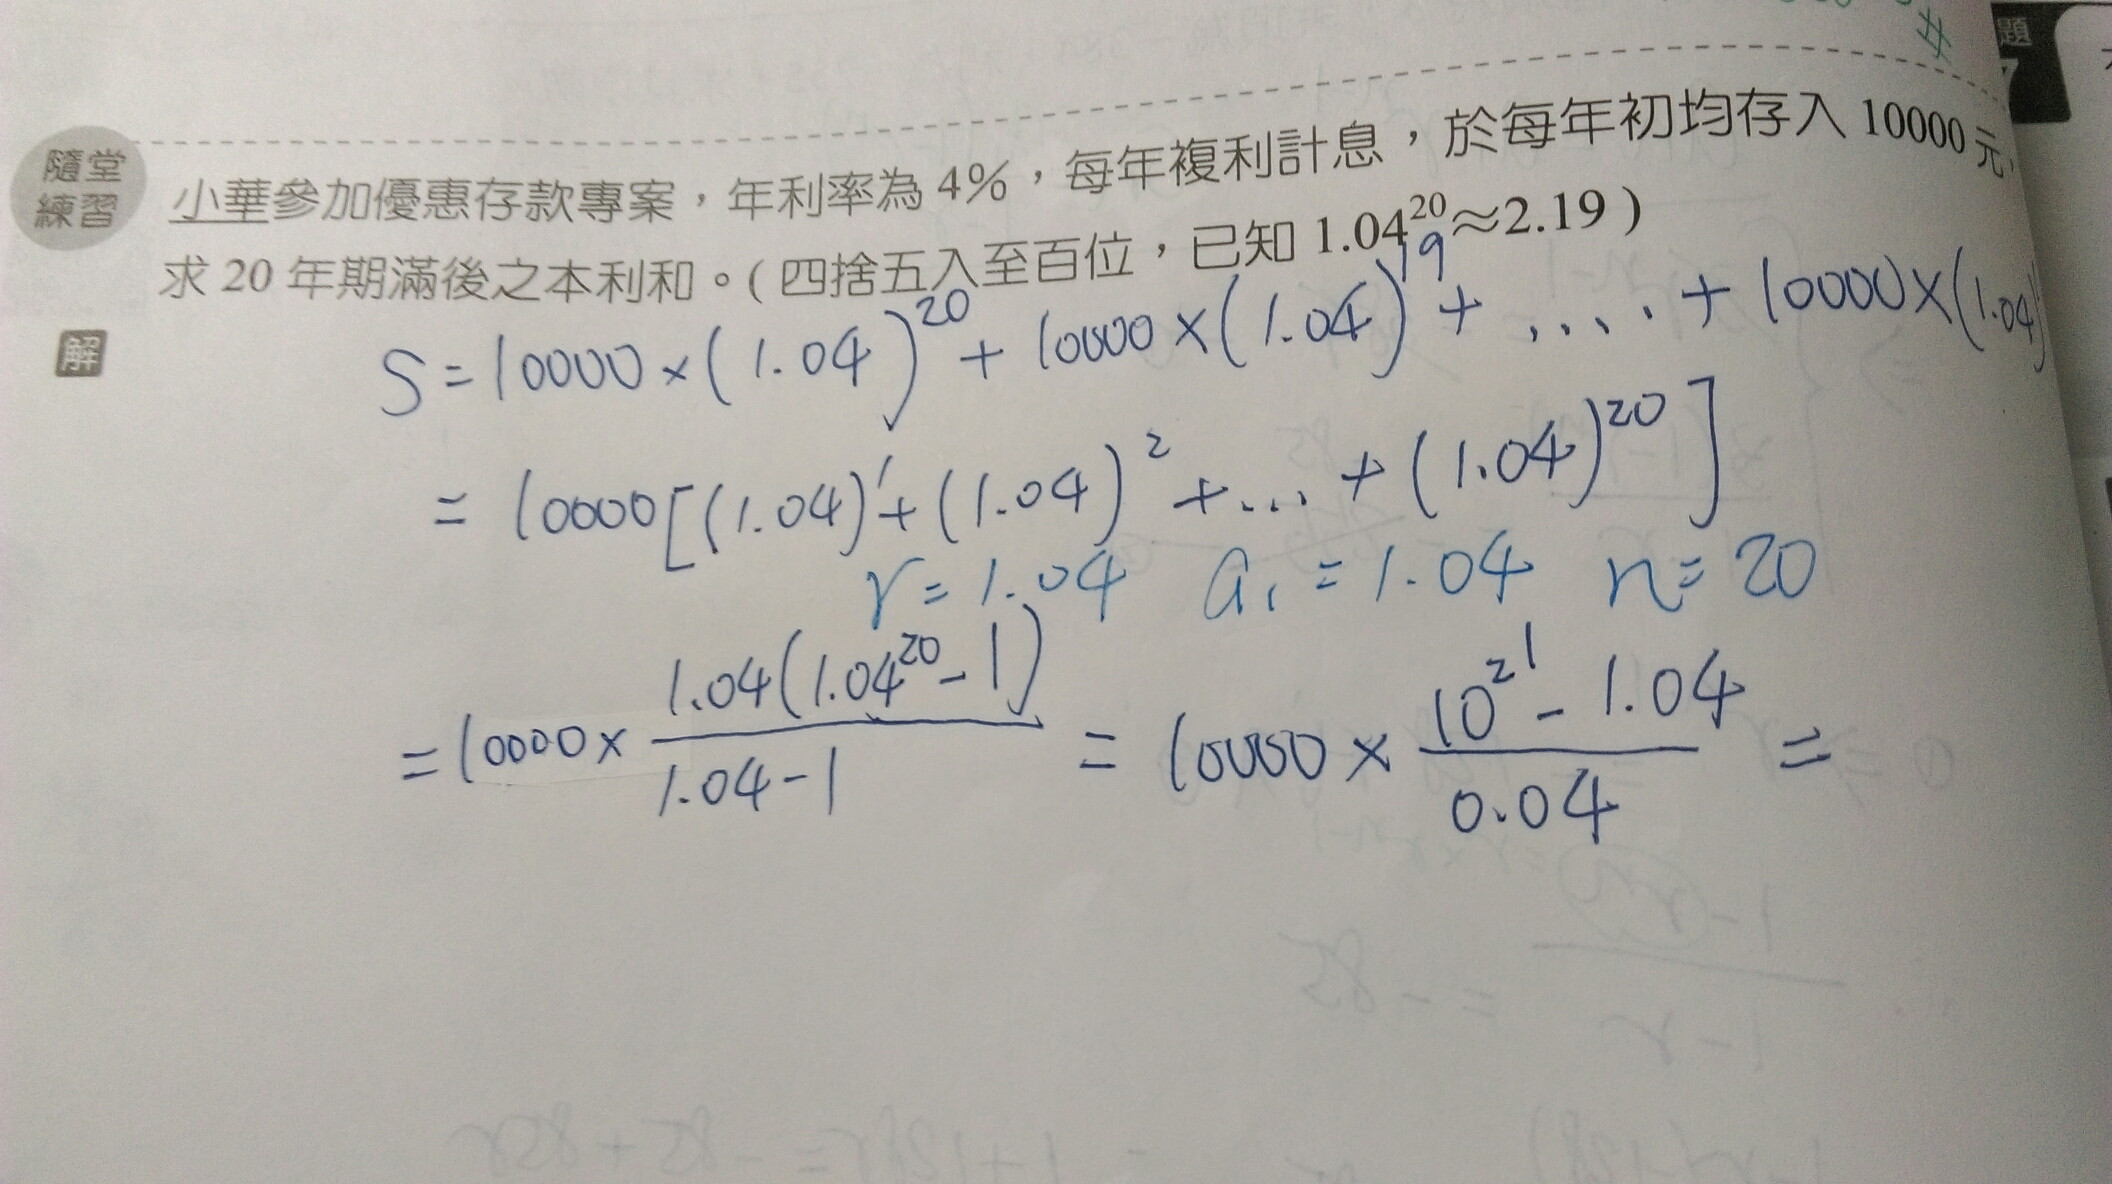 隨堂
練習
小華參加優惠存款專案，年利率為 4%，每年複利計息，於每年初均存入 10000 元，
求 20 年期滿後之本利和。( 四捨五入至百位，已知 1.04²⁰≈2.19 )
解
S = 10000 × (1.04)²⁰ + 10000 × (1.04)¹⁹ + .... + 10000 × (1.04)
= 10000 [(1.04)¹ + (1.04)² + ... + (1.04)²⁰]
r = 1.04 a₁ = 1.04 n = 20
= 10000 × \frac{1.04(1.04²⁰ - 1)}{1.04 - 1} = 10000 × \frac{10²¹ - 1.04}{0.04} =
題
#